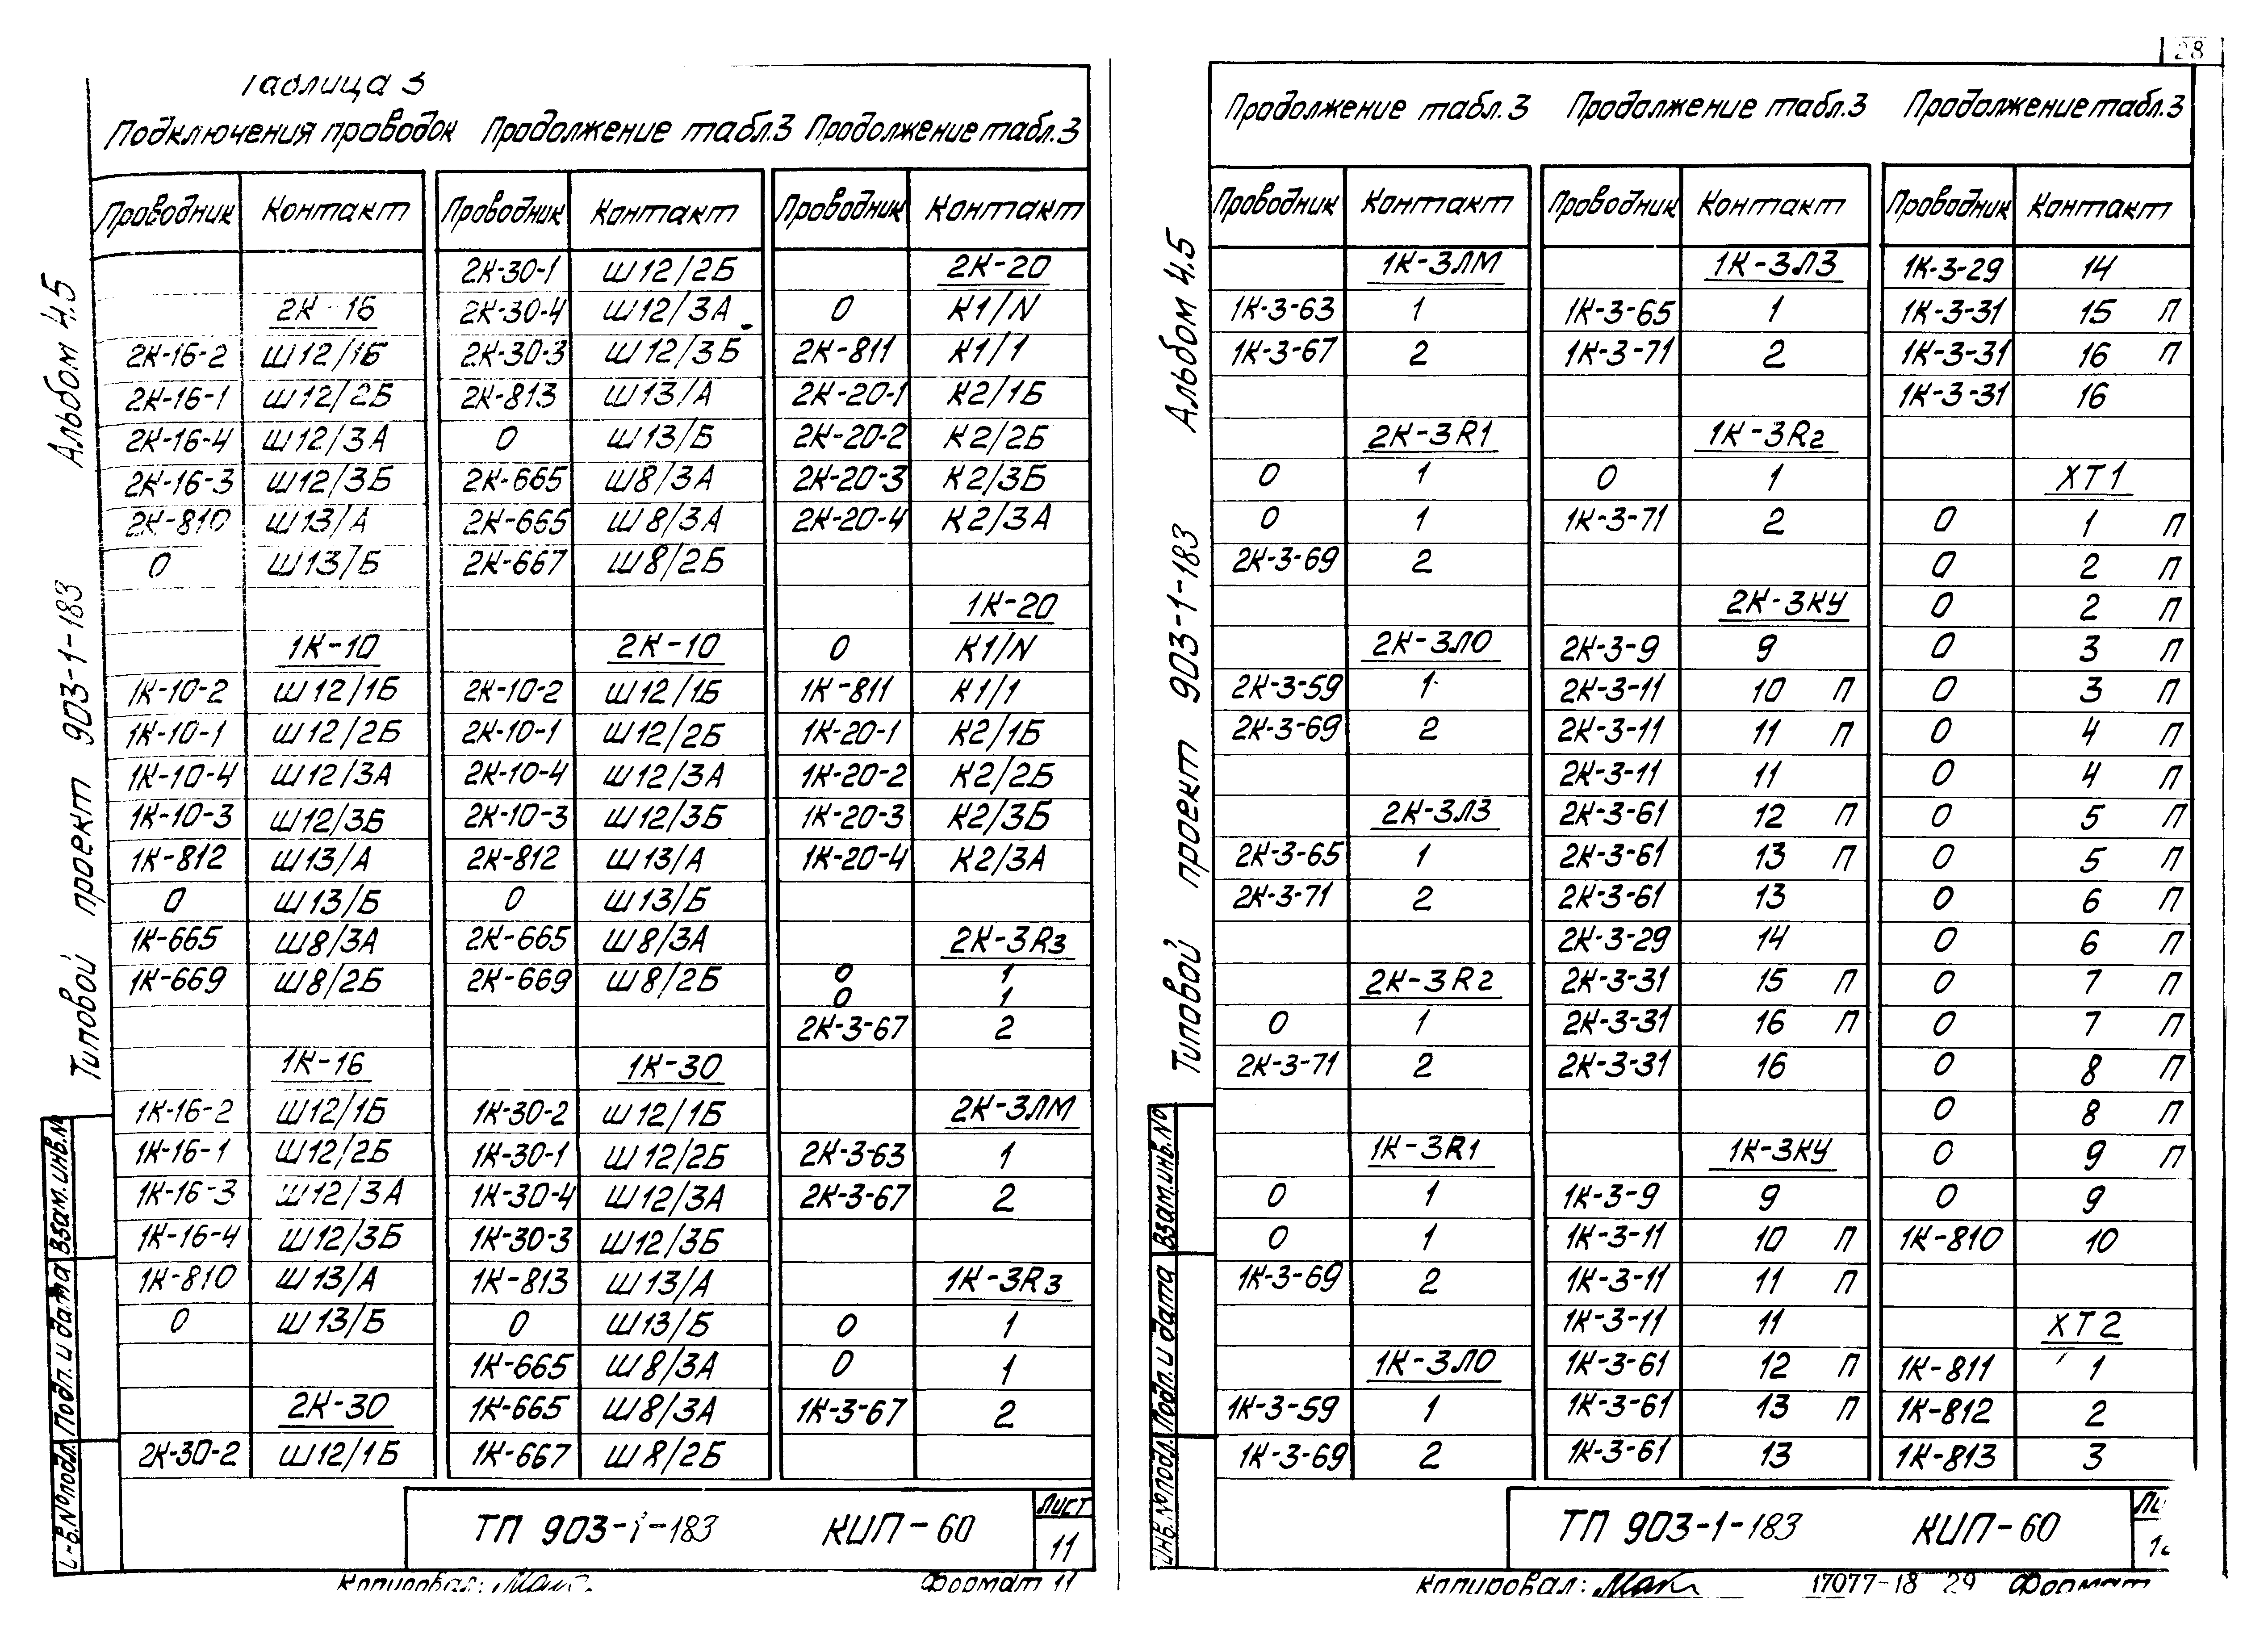 28
Таблица 3
Подключения проводок Продолжение табл.3 Продолжение табл.3
Проводник Контакт Проводник Контакт Проводник Контакт
2К-30-1 Ш12/2Б 2К-20
2К-16 2К-30-4 Ш12/3А 0 К1/N
2К-16-2 Ш12/1Б 2К-30-3 Ш12/3Б 2К-811 К1/1
2К-16-1 Ш12/2Б 2К-813 Ш13/А 2К-20-1 К2/1Б
2К-16-4 Ш12/3А 0 Ш13/Б 2К-20-2 К2/2Б
2К-16-3 Ш12/3Б 2К-665 Ш8/3А 2К-20-3 К2/3Б
2К-810 Ш13/А 2К-665 Ш8/3А 2К-20-4 К2/3А
0 Ш13/Б 2К-667 Ш8/2Б
1К-20
1К-10 2К-10 0 К1/N
1К-10-2 Ш12/1Б 2К-10-2 Ш12/1Б 1К-811 К1/1
1К-10-1 Ш12/2Б 2К-10-1 Ш12/2Б 1К-20-1 К2/1Б
1К-10-4 Ш12/3А 2К-10-4 Ш12/3А 1К-20-2 К2/2Б
1К-10-3 Ш12/3Б 2К-10-3 Ш12/3Б 1К-20-3 К2/3Б
1К-812 Ш13/А 2К-812 Ш13/А 1К-20-4 К2/3А
0 Ш13/Б 0 Ш13/Б
1К-665 Ш8/3А 2К-665 Ш8/3А 2К-3R3
1К-669 Ш8/2Б 2К-669 Ш8/2Б 0 1
0 1
2К-3-67 2
1К-16 1К-30
1К-16-2 Ш12/1Б 1К-30-2 Ш12/1Б 2К-3ЛМ
1К-16-1 Ш12/2Б 1К-30-1 Ш12/2Б 2К-3-63 1
1К-16-3 Ш12/3А 1К-30-4 Ш12/3А 2К-3-67 2
1К-16-4 Ш12/3Б 1К-30-3 Ш12/3Б
1К-810 Ш13/А 1К-813 Ш13/А 1К-3R3
0 Ш13/Б 0 Ш13/Б 0 1
1К-665 Ш8/3А 0 1
2К-30 1К-665 Ш8/3А 1К-3-67 2
2К-30-2 Ш12/1Б 1К-667 Ш8/2Б
Типовой проект 903-1-183 Альбом 4.5
Взам.инв.№
Подп. и дата
№подл.
ТП 903-1-183 КИП-60
Лист
11
Копировал:
Формат 11
Продолжение табл.3 Продолжение табл.3 Продолжение табл.3
Проводник Контакт Проводник Контакт Проводник Контакт
1К-3ЛМ 1К-3ЛЗ 1К-3-29 14
1К-3-63 1 1К-3-65 1 1К-3-31 15 П
1К-3-67 2 1К-3-71 2 1К-3-31 16 П
1К-3-31 16
2К-3R1 1К-3R2
0 1 0 1 ХТ1
0 1 1К-3-71 2 0 1 П
2К-3-69 2 0 2 П
2К-3КУ 0 2 П
2К-3ЛО 2К-3-9 9 0 3 П
2К-3-59 1 2К-3-11 10 П 0 3 П
2К-3-69 2 2К-3-11 11 П 0 4 П
2К-3-11 11 0 4 П
2К-3ЛЗ 2К-3-61 12 П 0 5 П
2К-3-65 1 2К-3-61 13 П 0 5 П
2К-3-71 2 2К-3-61 13 0 6 П
2К-3-29 14 0 6 П
2К-3R2 2К-3-31 15 П 0 7 П
0 1 2К-3-31 16 П 0 7 П
2К-3-71 2 2К-3-31 16 0 8 П
0 8 П
1К-3R1 1К-3КУ 0 9 П
0 1 1К-3-9 9 0 9
0 1 1К-3-11 10 П 1К-810 10
1К-3-69 2 1К-3-11 11 П
1К-3-11 11 ХТ2
1К-3ЛО 1К-3-61 12 П 1К-811 1
1К-3-59 1 1К-3-61 13 П 1К-812 2
1К-3-69 2 1К-3-61 13 1К-813 3
Типовой проект 903-1-183 Альбом 4.5
Взам.инв.№
Подп. и дата
Инв.№подл.
ТП 903-1-183 КИП-60
Копировал:
17077-18 29 Формат